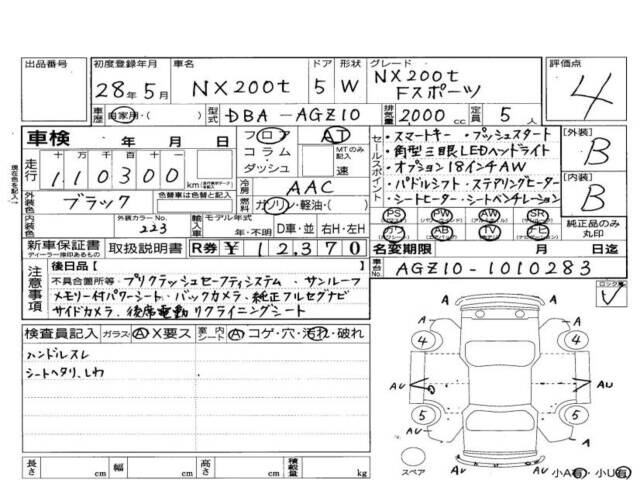 出品番号
初度登録年月
28年5月
車名
NX200t
ドア
5
形状
W
グレード
NX200t
Fスポーツ
評価点
4
車歴
自家用・( )
型式
DBA-AGZ10
排気量
2,000cc
定員
5人
車検 年 月 日
フロア
コラム
ダッシュ
AT
MTのみ記入
速
走行
十万 万 千 百 十 一
110300
km
現在色を記入
外装色
ブラック
色替車は色替と記入
冷房
AAC
燃料
ガソリン・軽油・( )
内装色
外装カラーNo.
223
輸入車
モデル年式
年・不明
D車・並
右H・左H
新車保証書
ディーラー捺印あるもの
取扱説明書
R券
¥12,370
セールスポイント
・スマートキー・プッシュスタート
・角型三眼LEDヘッドライト
・オプション18インチAW
・パドルシフト・ステアリングヒーター
・シートヒーター・シートベンチレーション
PS PW AW SR
カワ AB TV ナビ
[外装]
B
[内装]
B
純正品のみ丸印
名変期限 月 日迄
車台No.
AGZ10-1010283
注意事項
後日品[ ]
不具合箇所等・プリクラッシュセーフティシステム・サンルーフ
メモリー付パワーシート・バックカメラ・純正フルセグナビ
サイドカメラ・後席電動リクライニングシート
検査員記入
ガラス・A・X要ス
室内シート
A・コゲ・穴・汚れ・破れ
ハンドルスレ
シートヘタリ、しわ
長さ cm
幅 cm
高さ cm
積載量 kg
ロック無
A
4
4
A
AU
AU
5
5
AU
AU
A
A
スペア
小A有・小U有